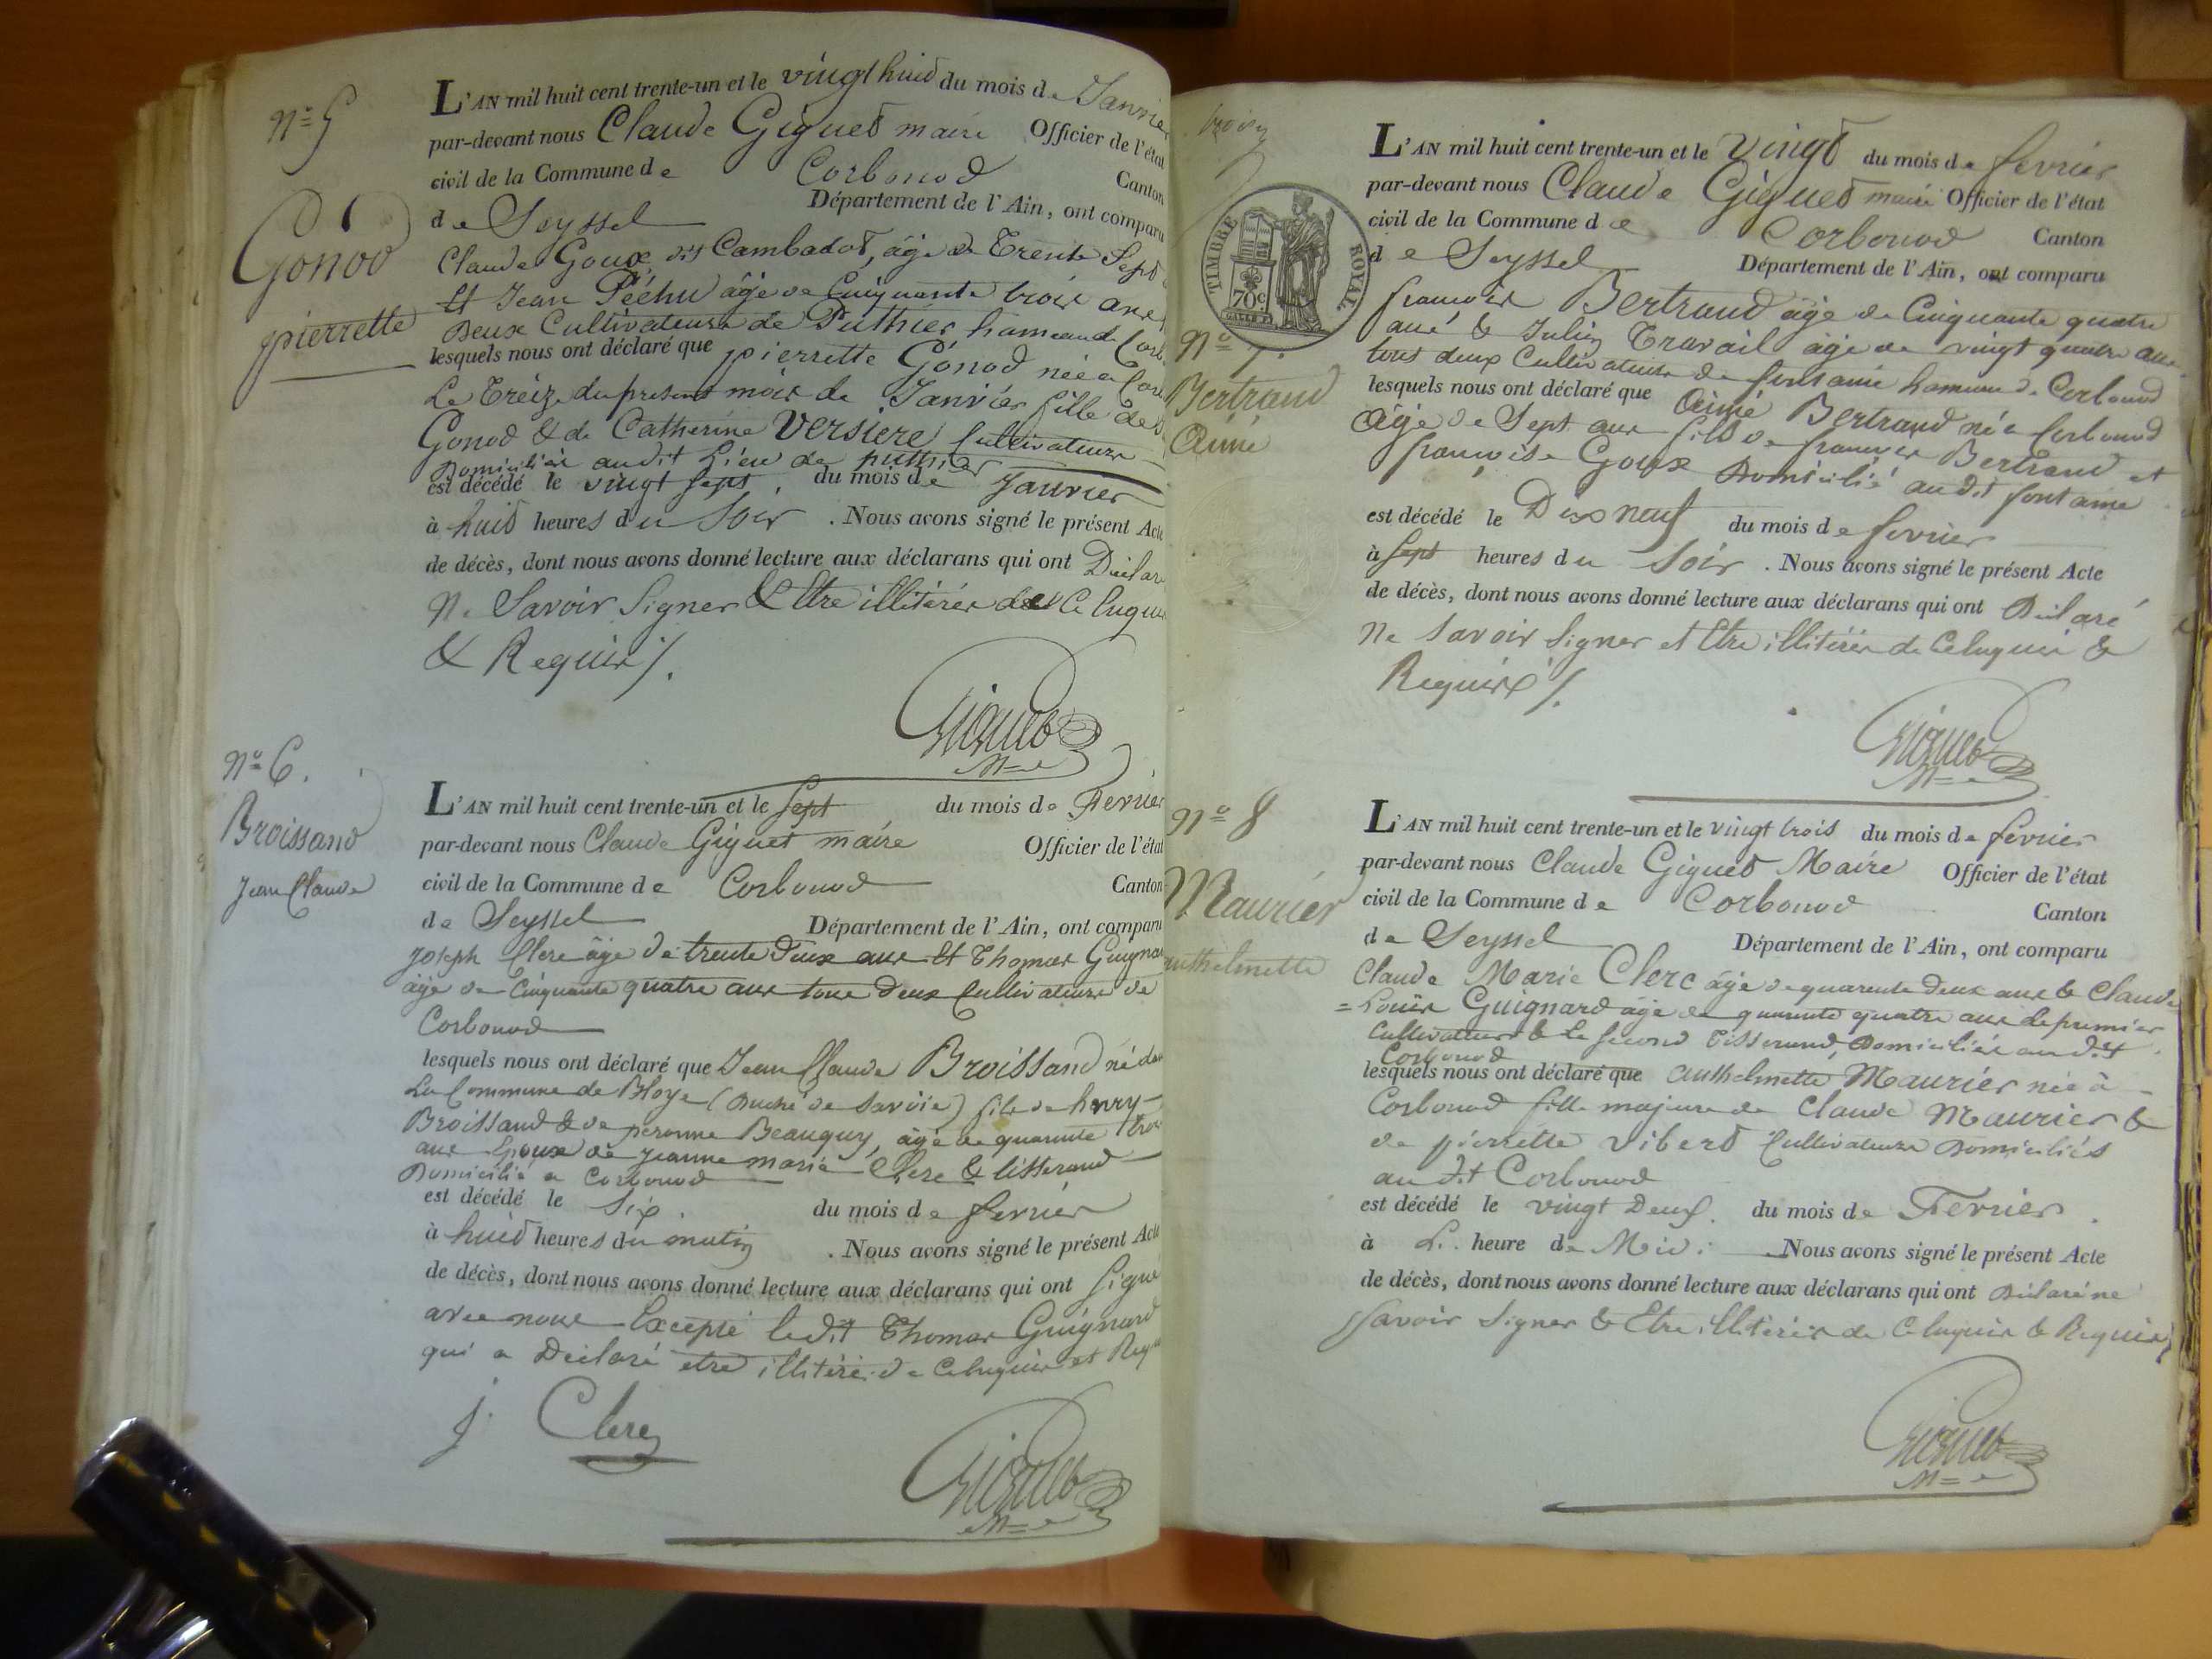 N° 5
Gonod
pierrette
L'AN mil huit cent trente-un et le vingt huit du mois de Janvier
par-devant nous Claude Giguet maire Officier de l'état
civil de la Commune de Corbonod Canton
de Seyssel Département de l'Ain, ont comparu
Claude Goux dit Cambadot, âgé de Trente Sept
et Jean Péchu âgé de Cinquante trois ans
Deux Cultivateurs de Puthier hameau de Corb
lesquels nous ont déclaré que pierrette Gonod née a Cor
Le Treize du present mois de Janvier fille de
Gonod & de Catherine Versiere Cultivateurs
Domiciliés audit Lieu de puthier
est décédé le vingt sept du mois de Janvier
à huit heures du Soir . Nous avons signé le présent Acte
de décès, dont nous avons donné lecture aux déclarans qui ont Déclar
Ne Savoir Signer & Etre illitérés de Ce Enquis
& Requis /.
Giguet
M=e
N° 6.
Broissand
Jean Claude
L'AN mil huit cent trente-un et le Sept du mois de Fevrier
par-devant nous Claude Giguet maire Officier de l'état
civil de la Commune de Corbonod Canton
de Seyssel Département de l'Ain, ont comparu
Joseph Clerc âgé de trente Deux ans Et Thomas Guignar
âgé de Cinquante quatre ans tous Deux Cultivateurs de
Corbonod
lesquels nous ont déclaré que Jean Claude Broissand né da
La Commune de Bloye (Duché de Savoie) fils de henry
Broissand & de peronne Beauquy, âgé de quarante trois
ans Epoux de Jeanne marie Clerc & tisserand
Domicilié a Corbonod
est décédé le Six du mois de fevrier
à huit heures du matin . Nous avons signé le présent Acte
de décès, dont nous avons donné lecture aux déclarans qui ont Signé
avec nous Excepté ledit Thomas Guignard
qui a Déclaré etre illitéré de Ce Enquis et Requ
J. Clerc
Giguet
M=e
TIMBRE ROYAL
70c
N° 7.
Bertrand
Aimé
L'AN mil huit cent trente-un et le Vingt du mois de fevrier
par-devant nous Claude Giguet maire Officier de l'état
civil de la Commune de Corbonod Canton
de Seyssel Département de l'Ain, ont comparu
francois Bertrand âgé de Cinquante quatre
ans & Julien Travail âgé de vingt quatre ans
tous deux Cultivateurs de fontaine hameau de Corbonod
lesquels nous ont déclaré que Aimé Bertrand né a Corbonod
Agé de Sept ans fils de francois Bertrand et
francoise Goux Domicilié audit fontaine
est décédé le Dix neuf du mois de fevrier
à Sept heures du Soir . Nous avons signé le présent Acte
de décès, dont nous avons donné lecture aux déclarans qui ont Déclaré
Ne Savoir Signer et Etre illitérés de Ce Enquis &
Requis /.
Giguet
M=e
N° 8
Maurier
anthelmette
L'AN mil huit cent trente-un et le vingt trois du mois de fevrier
par-devant nous Claude Giguet Maire Officier de l'état
civil de la Commune de Corbonod Canton
de Seyssel Département de l'Ain, ont comparu
Claude Marie Clerc âgé de quarante Deux ans & Claude
= Louis Guignard âgé de quarante quatre ans Le premier
Cultivateur & Le Second Tisserand, Domiciliés audit
Corbonod
lesquels nous ont déclaré que anthelmette Maurier née à
Corbonod fille majeure de Claude Maurier &
de pierrette Vibert Cultivateurs Domiciliés
audit Corbonod
est décédé le vingt Deux du mois de Fevrier .
à L. heure de Midi Nous avons signé le présent Acte
de décès, dont nous avons donné lecture aux déclarans qui ont Déclaré ne
Savoir Signer & Etre illitérés de Ce Enquis & Requis
Giguet
M=e